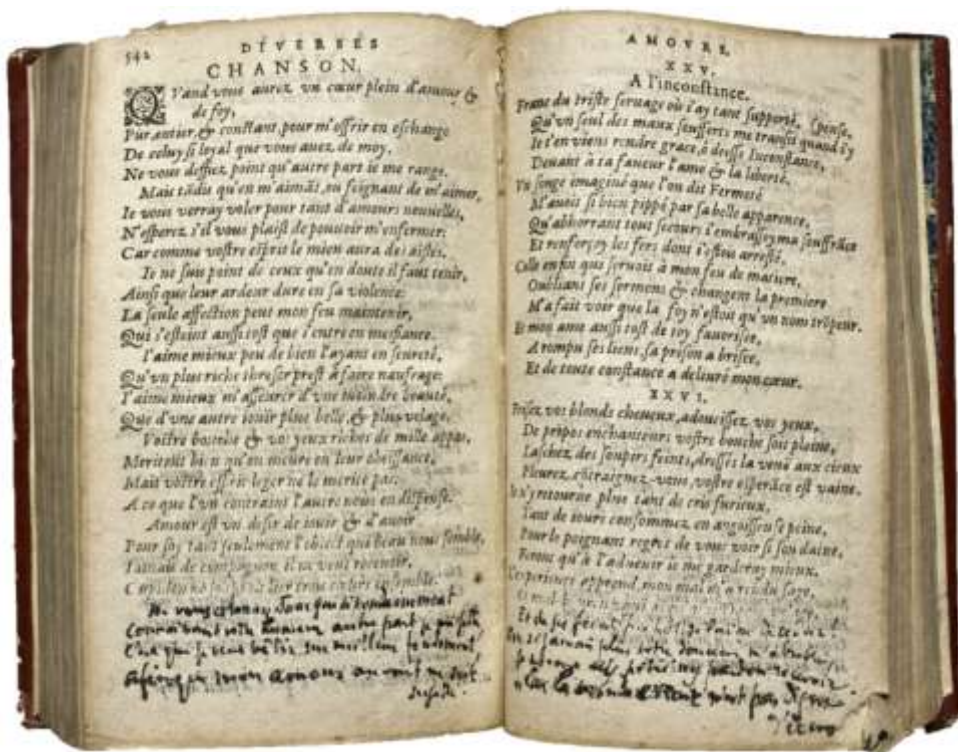 542
DIVERSES
CHANSON.
QVand vous aurez vn cœur plein d'amour &
de foy,
Pur, entier, & constant, pour m'offrir en eschange
De celuy si loyal que vous auez de moy,
Ne vous deffiez point qu'autre part ie me range.
Mais tādis qu'en m'aimāt, ou feignant de m'aimer,
Ie vous verray voler pour tant d'amours nouuelles,
N'esperez s'il vous plaist de pouuoir m'enfermer:
Car comme vostre esprit le mien aura des aisles.
Ie ne suis point de ceux qu'en doute il faut tenir,
Ainsi que leur ardeur dure en sa violence:
La seule affection peut mon feu maintenir,
Qui s'esteint aussi tost que i'entre en mesfiance.
I'aime mieux peu de bien l'ayant en seureté,
Qu'vn plus riche thresor prest à faire naufrage:
I'aime mieux m'asseurer d'vne moindre beauté,
Que d'vne autre iouir plus belle, & plus volage.
Vostre bouche & vos yeux riches de mille appas,
Meritent bien qu'on meure en leur obeissance,
Mais vostre esprit leger ne le merite pas:
A ce que l'vn contraint l'autre nous en dispense.
Amour est vn desir de iouir & d'auoir
Pour soy tant seulement l'obiect qui beau nous semble,
de compagnon il ne veut receuoir,
trois cœurs ensemble.
AMOVRS.
XXV.
A l'inconstance.
Franc du triste seruage où i'ay tant supporté, (pense,
Qu'vn seul des maux soufferts me transit quand i'y
Ie t'en viens rendre grace, ô deesse Inconstance,
Deuant à ta faueur l'ame & la liberté.
Vn songe imaginé que l'on dit Fermeté
M'auoit si bien pippé par sa belle apparence,
Qu'abhorrant tous secours i'embrassoy ma souffrāce
Et renforçoy les fers dont i'estois arresté,
Celle en fin qui seruoit à mon feu de matiere,
Oubliant ses sermens & changeant la premiere
M'a fait voir que la foy n'estoit qu'vn nom trōpeur.
Et mon ame aussi tost de toy fauorisee,
A rompu ses liens, sa prison a brisee,
Et de toute constance a deliuré mon cœur.
XXVI.
Frisez vos blonds cheueux, adoucissez vos yeux,
De propos enchanteurs vostre bouche soit pleine,
Laschez des soupirs feints, dressés la veuë aux cieux
Pleurez, cōtraignez-vous, vostre esperāce est vaine.
Ie n'y retourne plus tant de cris furieux,
Tant de iours consommez en angoisseuse peine,
Pour le poignant regret de vous voir si soudaine,
Feront qu'à l'aduenir ie me garderay mieux,
L'experience apprend, mon mal m'a rendu sage,